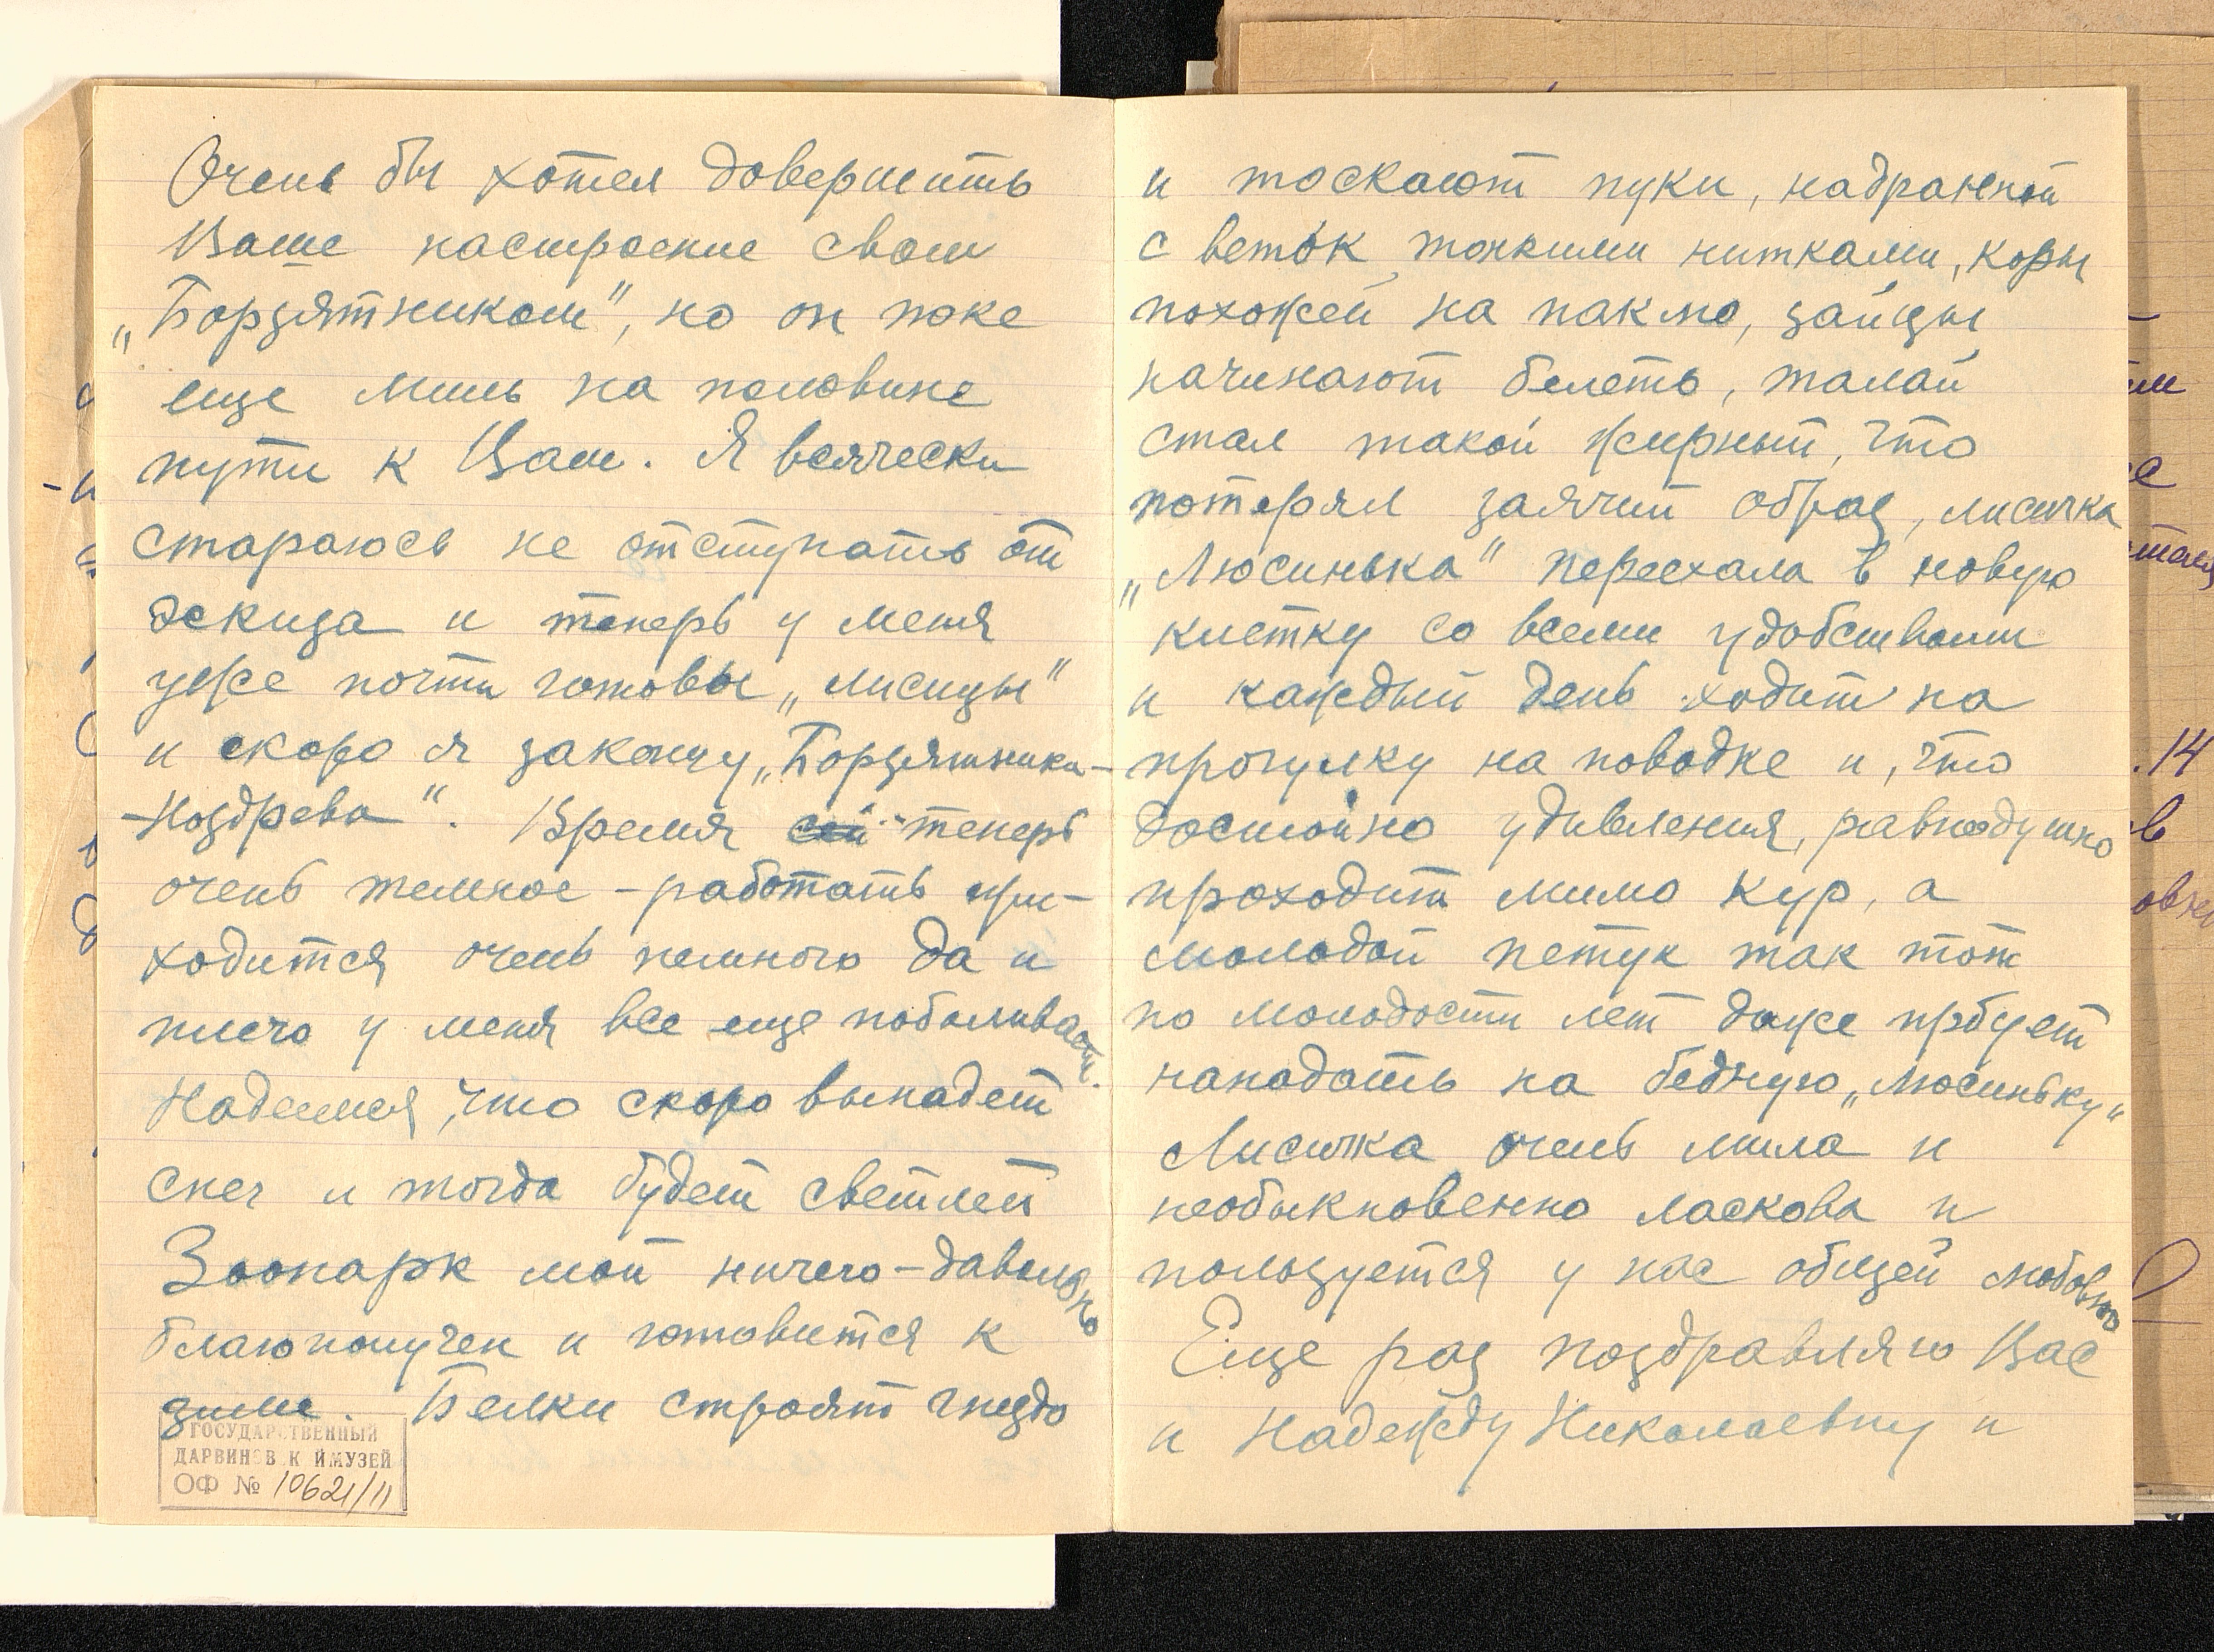 Очень бы хотел довершить
Ваше настроение своим
„Борзятником", но он пока
еще лишь на половине
пути к Вам. Я всячески
стараюсь не отступать от
эскиза и теперь у меня
уже почти готовы „лисицы"
и скоро я закончу „Борзятника-
-Ноздрева". Время теперь
очень темное - работать при-
ходится очень немного да и
плечо у меня все еще побаливает.
Надеемся, что скоро выпадет
снег и тогда будет светлей
Зоопарк мой ничего - довольно
благополучен и готовится к
зиме. Белки строят гнездо
ГОСУДАРСТВЕННЫЙ
ДАРВИНОВСКИЙ МУЗЕЙ
ОФ № 10621/11
и таскают пуки, надранной
с веток тонкими нитками, коры
похожей на паклю, зайцы
начинают белеть, талай
стал такой жирный, что
потерял заячий образ, лисичка
„Люсинька" переехала в новую
клетку со всеми удобствами
и каждый день ходит на
прогулку на поводке и, что
достойно удивления, равнодушно
проходит мимо кур, а
молодой петух так тот
по молодости лет даже прбует
нападать на бедную „Люсиньку"
Лисичка очень мила и
необыкновенно ласкова и
пользуется у нас общей любовью
Еще раз поздравляю Вас
и Надежду Николаевну и